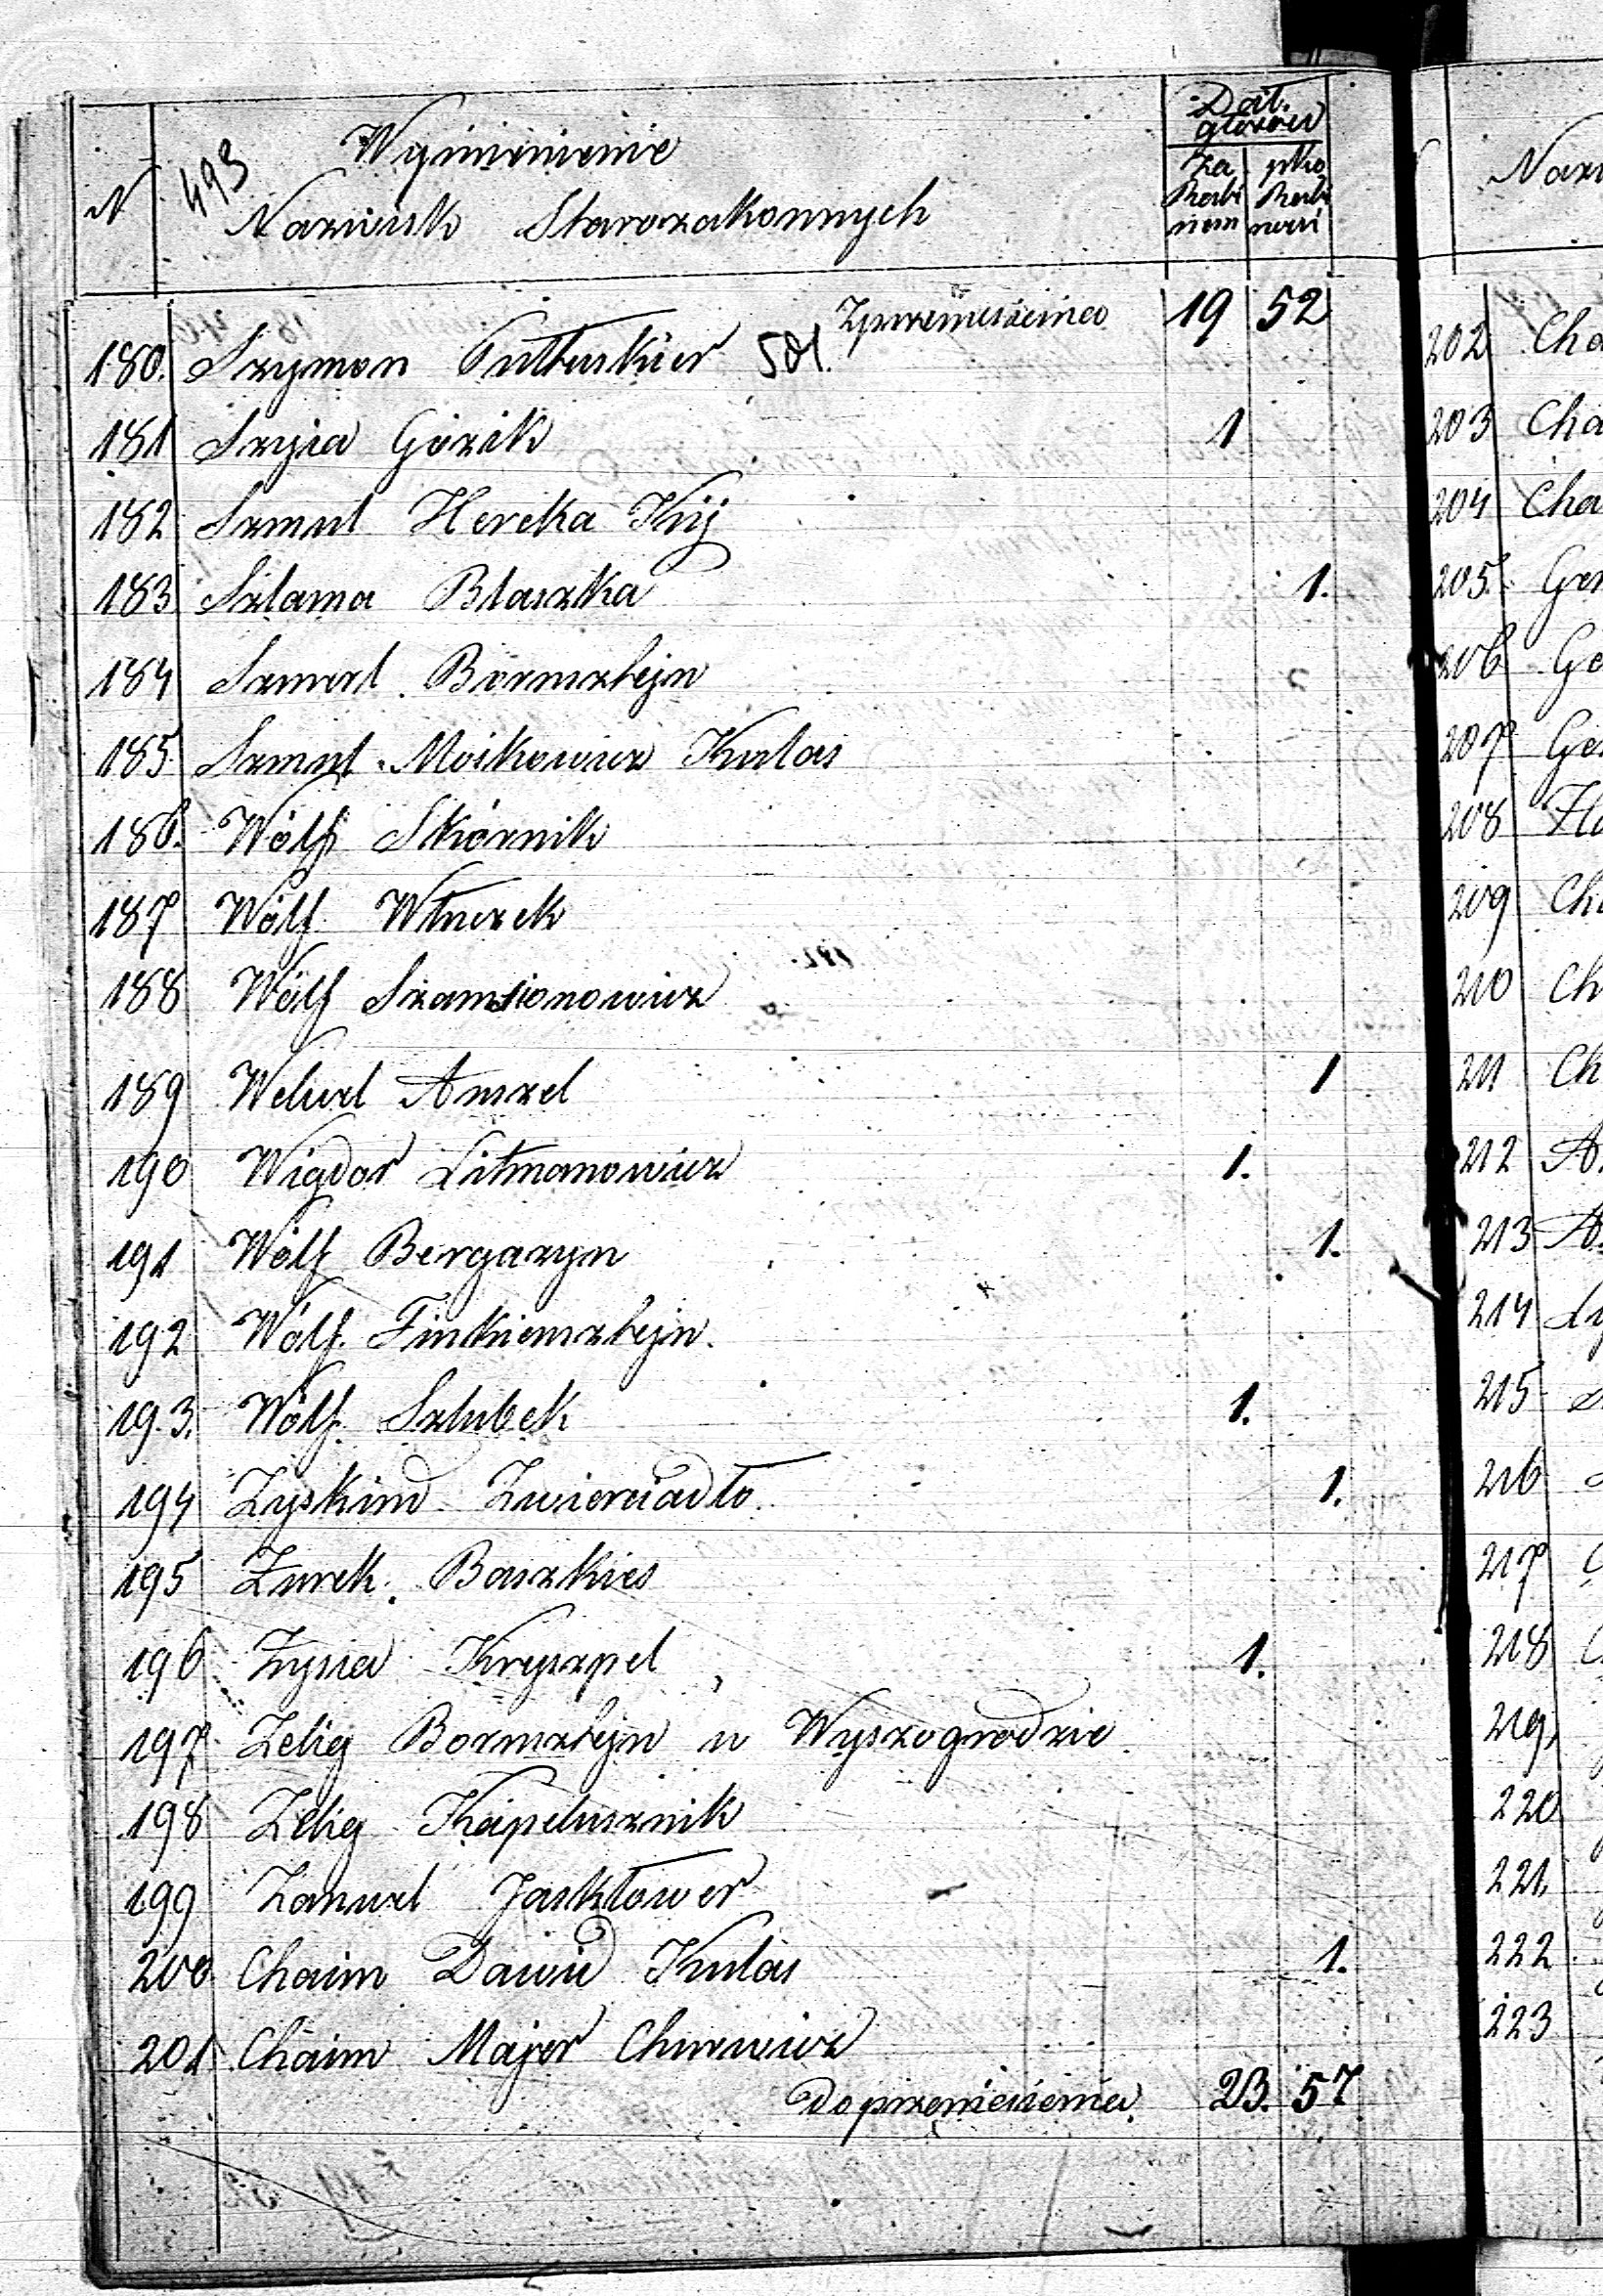 N 493 Wymienienie Dał. głosów
Nazwisk Starozakonnych za Rabinem ptko Rabinowi
Z przeniesienia 19 52
180. Szymon Pułtuskier 501.
181 Szyia Górik 1
182 Szmul Hercka Kij
183 Szlama Blaszka 1.
184 Szmul Bornsztejn
185 Szmul Moikowicz Kulas
186. Wólf Skórnik
187 Wólf Włuczek
188 Wólf Szamsionowicz
189 Welwel Anszel 1
190 Wigdor Litmanowicz 1.
191 Wólf Bergazyn 1.
192 Wólf Finkiensztejn.
193. Wólf Szlubek 1.
194 Zyskind Zwierciadło 1.
195 Zurek Baszkies
196 Zysia Kryszpel 1.
197 Zelig Bornsztejn w Wyszogrodzie
198 Zelig Kapelusznik
199 Zanwel Jaskłower
200 Chaim Dawid Kulas 1.
201 Chaim Majer Churwicz
Do przeniesienia 23. 57
202 Cha
203 Cha
204 Cha
205. Ger
206 Ge
207 Ger
208
209 Ch
210 Ch
211 Ch
212 A
213 A
214
215
216
217
218
219,
220
221,
222
223